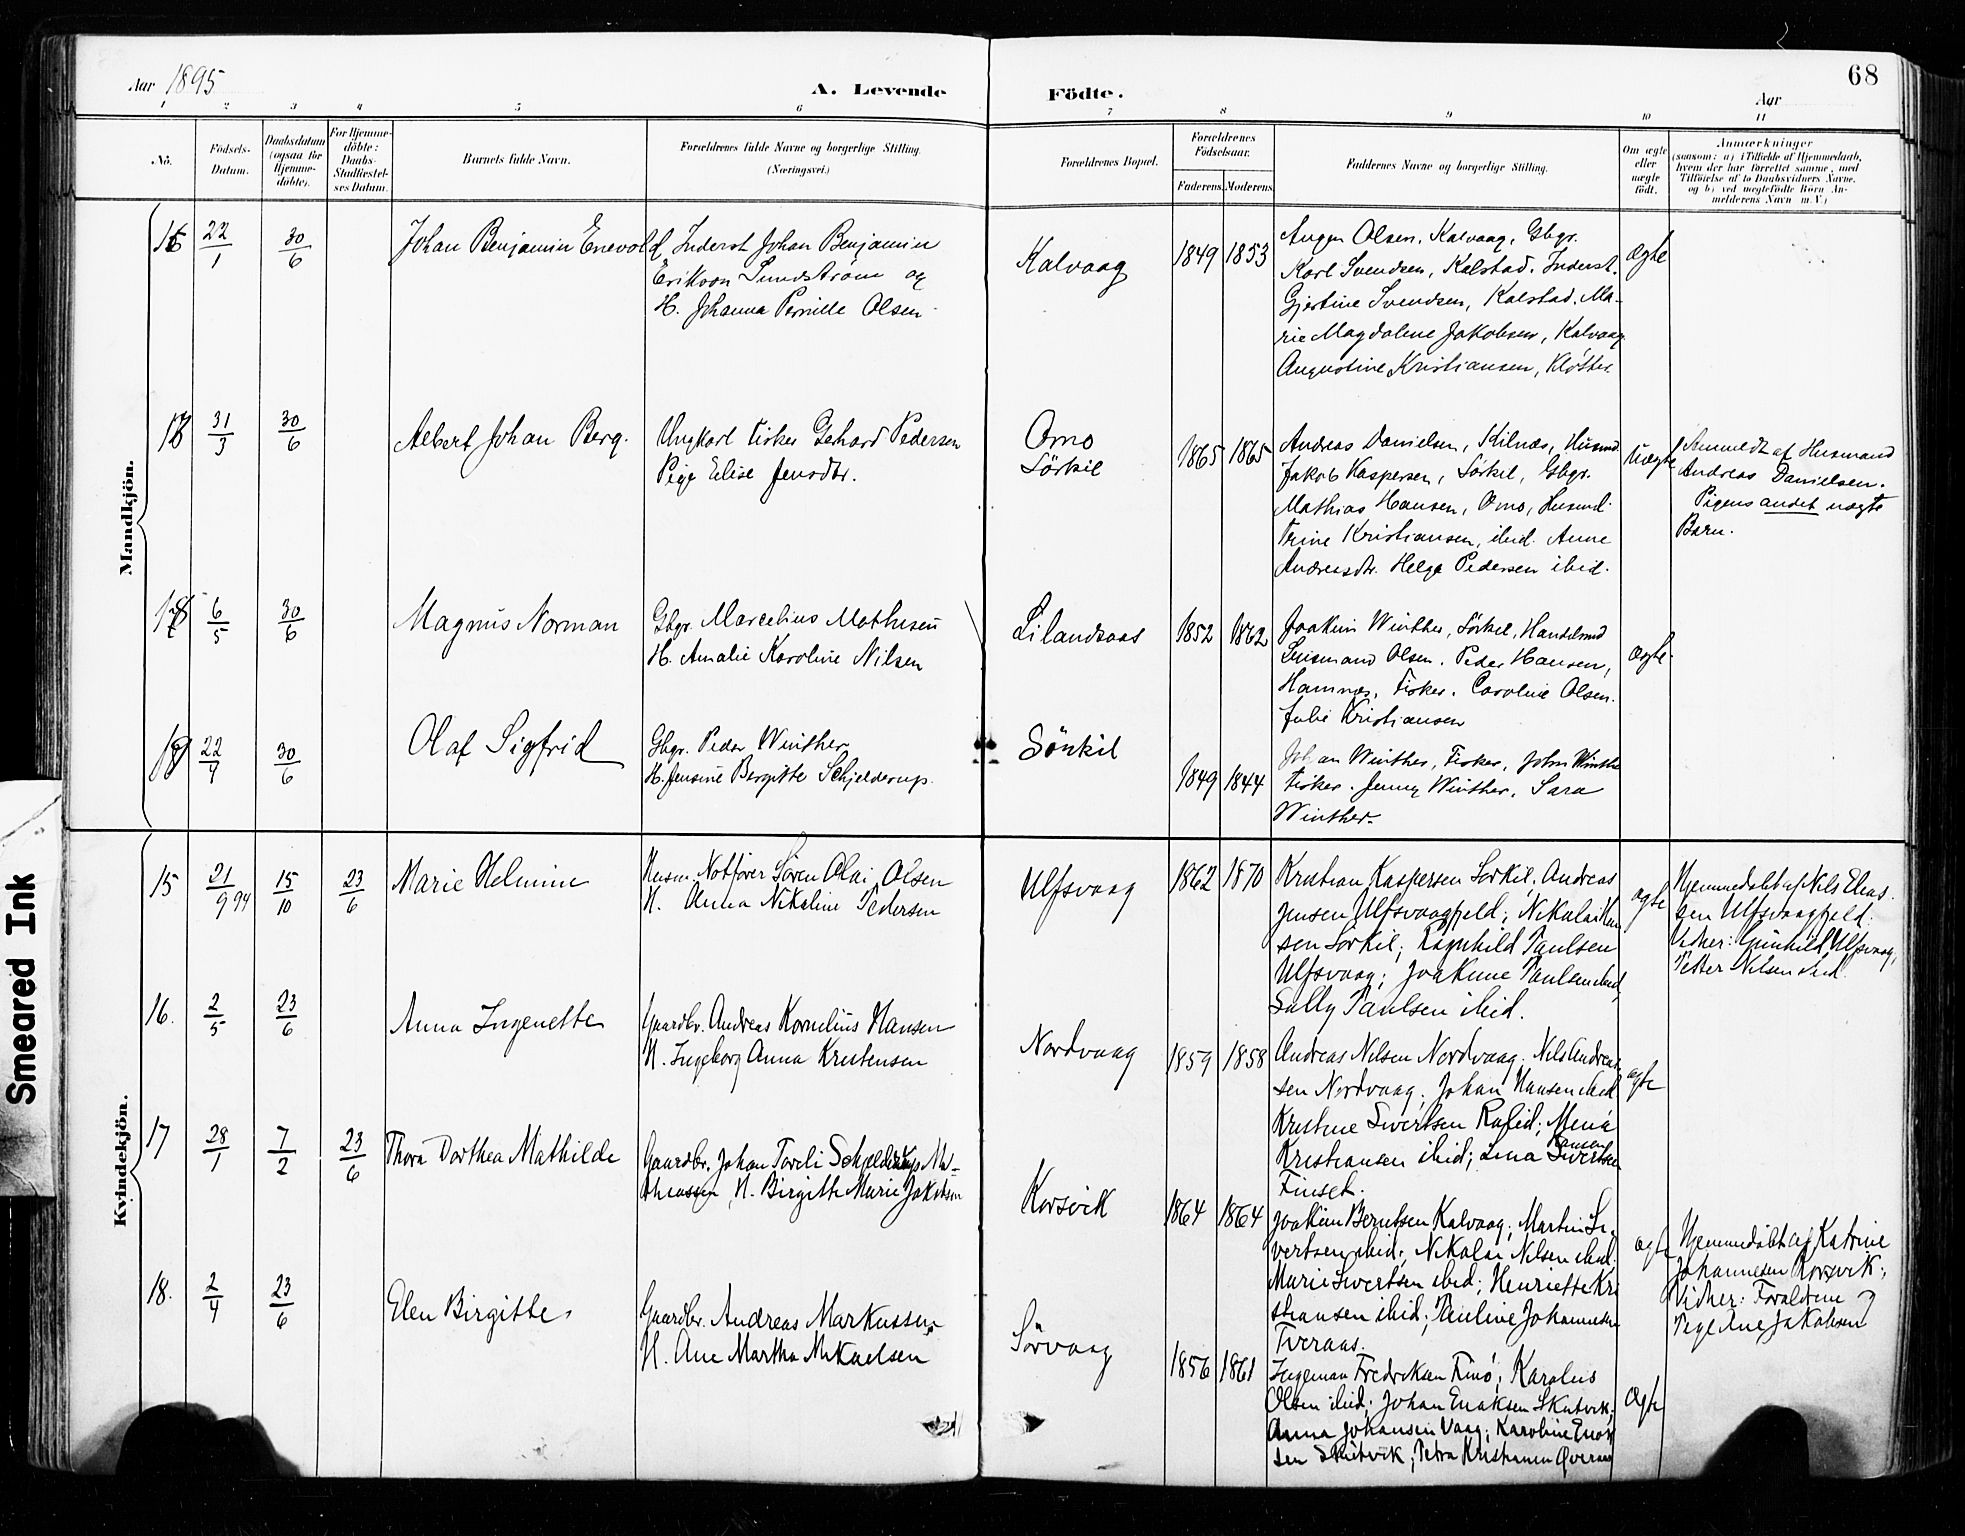 68
Aar 1895
A. Levende
Födte.
Aar
1 2 3 4 5 6 7 8 9 10 11
No.
Födsels-
Datum.
Daabsdatum
(ogsaa for
Hjemme-
döbte).
For Hjemme-
döbte:
Daabs-
Stadfæstel-
ses Datum.
Barnets fulde Navn.
Forældrenes fulde Navne og borgerlige Stilling.
(Næringsvei.)
Forældrenes Bopæl.
Forældrenes
Födselsaar.
Faderens. Moderens.
Faddernes Navne og borgerlige Stilling.
Om ægte
eller
uægte
födt.
Anmærkninger
(saasom: a) i Tilfælde af Hjemmedaab,
hvem der har forrettet samme, med
Tilföielse af to Daabsvidners Navne.
og b) ved uægtefödte Börn An-
melderens Navn m.V.)
Mandkjön.
16 22/1 30/6
Johan Benjamin Enevold
Inderst Johan Benjamin
Erikson Sundström og
H. Johanna Pernille Olsen
Kalvaag
1849 1853
Olsen, Kalvaag, Gbgr.
Karl Svendsen, Kalstad. Inderst.
Gjertine Svendsen, Kalstad. Ma-
rie Magdalene Jakobsen, Kalvaag
Augustine Kristiansen,
ægte
17 31/3 30/6
Albert Johan Berg.
Ungkarl Fisker Gehard Pedersen
Pige Elise Jensdtr.
Örnö
Sörkil
1865 1865
Andreas Danielsen, Kilnæs, Husmd.
Jakob Kaspersen, Sörkil, Gbgr.
Mathias Hansen, Örnö, Husmd.
Trine Kristiansen, ibid. Anne
Andreasdtr. Helga Pedersen ibid.
Uægte
Anmeldt af Husmand
Andreas Danielsen.
Pigens andet uægte
Barn.
18 6/5 30/6
Magnus Norman
Gbgr. Marcelius Mathisen
H. Amalie Karoline Nilsen
Lilandsaas
1852 1862
Joakim Winther, Sörkil, Handelsmd
Olsen. Peder Hansen,
Hamnæs, Fisker. Caroline Olsen.
Julie Kristiansen
ægte.
19 22/4 30/6
Olaf Sigfrid
Gbgr. Peder Winther
H. Jensine Birgitte Schjelderup.
Sörkil
1849 1844
Johan Winther, Fisker, John Winther
Fisker. Jenny Winther, Sara
Winther.
Kvindekjön.
15 21/9 94 15/10 23/6
Marie Helmine
Husm. Notfører Søren Olai Olsen
H. Anna Nikoline Pedersen
Ulfsvaag
1862 1870
Kristian Kaspersen Sörkil; Andreas
Jensen Ulfsvaagfjeld; Nikolai Han
sen Sörkil; Ragnhild Paulsen
Ulfsvaag; Joakime Paulsen ibid,
Sally Paulsen ibid.
ægte
Hjemmedöbt af Nils Elias
sen Ulfsvaagfjeld.
Vidner: Gunhild Ulfsvaag,
Petter Nilsen ibid.
16. 2/5 23/6
Anna Ingenette
Gaardbr. Andreas Kornelius Hansen
H. Ingeborg Anna Kristensen
Nordvaag
1859 1858
Andreas Nilsen Nordvaag; Nils Andrea
sen Nordvaag; Johan Hansen ibid
Kristine Sivertsen Röfeld; Mena
Kristiansen ibid; Lina Sivertsen
Hansen
Finset.
ægte
17 28/1 7/2 23/6
Thora Dorthea Mathilde
Gaardbr. Johan Toreli Schjelderup Ma-
thiassen, H. Birgitte Marie Jakobsen
Korsvik
1864 1864
Joakim Berntsen Kalvaag; Martin Si
vertsen ibid; Nikolai Nilsen ibid
Marie Sivertsen ibid; Henriette Kri
stiansen ibid; Pauline Johannesen
Tveraas.
ægte
Hjemmedöbt af Katrine
Johannesen Korsvik;
Vidner: Forældrene og
Pige Ane Jakobsen
18. 2/4 23/6
Elen Birgitte
Gaardbr. Andreas Markussen
H. Ane Martha Mikaelsen
Sörvaag
1856 1861
Ingeman Fredriksen Finö; Karolus
Olsen ibid; Johan Enoksen Skutvik;
Anna Johansen Vaag; Karoline Enok
sen Skutvik; Petra Kristiansen Överaas
Ægte
Smeared Ink